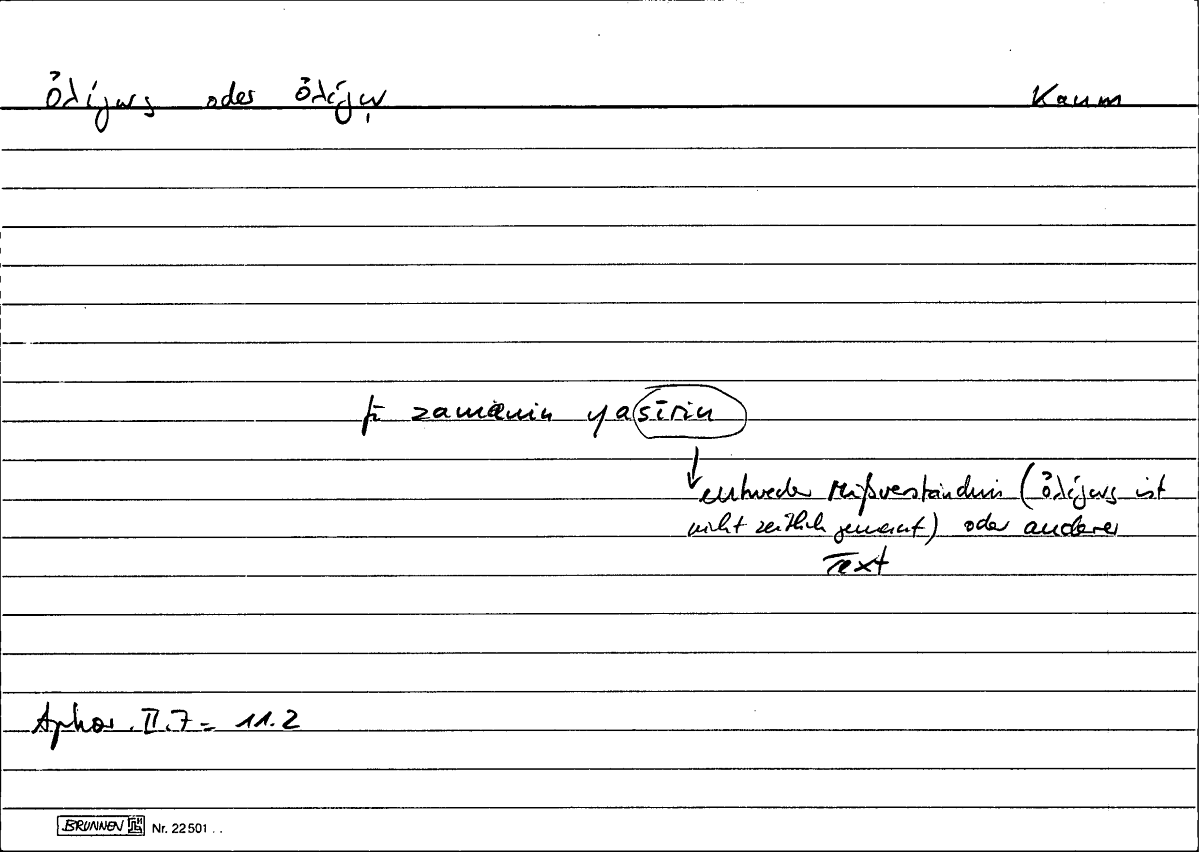 ὀλίγως oder ὀλίγῳ Kaum
fī zamānin yasīrin
entweder Mißverständnis (ὀλίγως ist
nicht zeitlich gemeint) oder anderer
Text
Aphor. II.7 = 11.2
BRUNNEN Nr. 22 501 . .